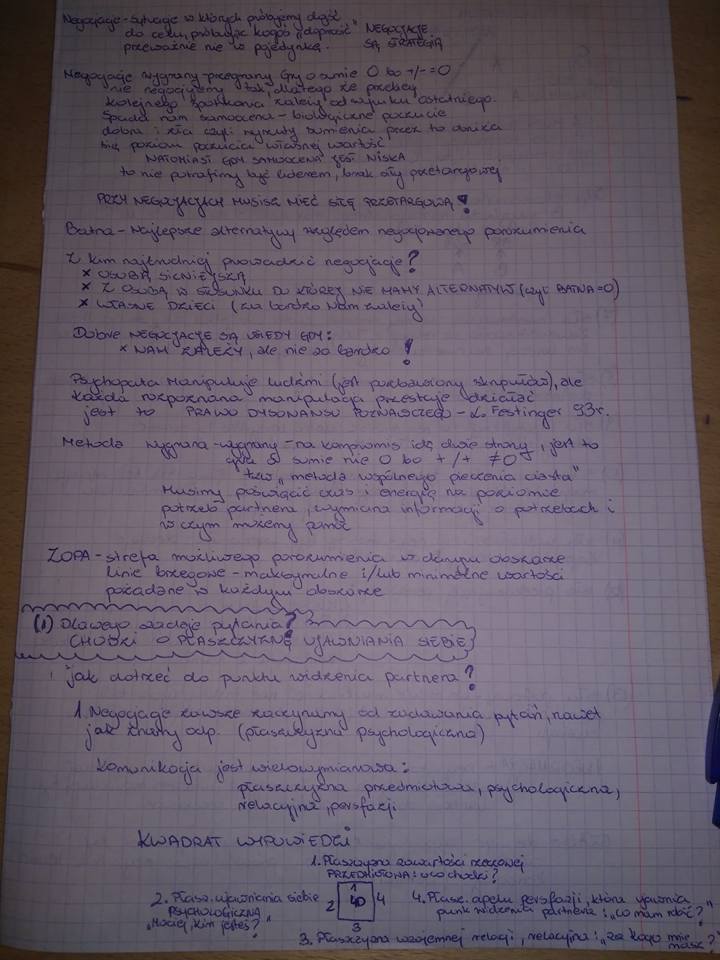 Negocjacje - sytuacje w których próbujemy dojść
do celu, próbując kogoś "dopaść" NEGOCJACJE
przeważnie nie w pojedynkę. SĄ STRATEGIĄ
Negocjacje wygrany-przegrany Gry o sumie 0 bo +/- = 0
nie negocjujemy tak, dlatego że przebieg
kolejnego spotkania zależy od wyniku ostatniego.
Spada nam samoocena - biologiczne poczucie
dobra i zła czyli wyrzuty sumienia przez to obniża
się poziom poczucia własnej wartość
NATOMIAST GDY SAMOOCENA JEST NISKA
to nie potrafimy być liderem, brak siły przetargowej
PRZY NEGOCJACJACH MUSISZ MIEĆ SIŁĘ PRZETARGOWĄ!
Batna - Najlepsze alternatywy względem negocjowanego porozumienia
Z kim najtrudniej prowadzić negocjacje?
× OSOBĄ SILNIEJSZĄ
× Z OSOBĄ W STOSUNKU DO KTÓREJ NIE MAMY ALTERNATYW (czyli BATNA=0)
× WŁASNE DZIECI (za bardzo nam zależy)
Dobre NEGOCJACJE SĄ WTEDY GDY:
× NAM ZALEŻY, ale nie za bardzo!
Psychopata manipuluje ludźmi (jest pozbawiony skrupułów), ale
każda rozpoznana manipulacja przestaje działać
jest to PRAWO DYSONANSU POZNAWCZEGO - L. Festinger 93r.
Metoda wygrana-wygrany - na kompromis idą dwie strony, jest to
gra o sumie nie 0 bo +/+ ≠ 0
tzw. "metoda wspólnego pieczenia ciasta"
Musimy poświęcić czas i energię na poziomie
potrzeb partnera, wymiana informacji o potrzebach i
w czym możemy pomóc
ZOPA - strefa możliwego porozumienia w danym obszarze
linie brzegowe - maksymalne i/lub minimalne wartości
pożądane w każdym obszarze
(1) Dlaczego zadaję pytania?
CHODZI O PŁASZCZYZNĘ UJAWNIANIA SIEBIE
! jak dotrzeć do punktu widzenia partnera?
1. Negocjacje zawsze zaczynamy od zadawania pytań, nawet
jak znamy odp. (płaszczyzna psychologiczna)
Komunikacja jest wielowymiarowa:
płaszczyzna przedmiotowa, psychologiczna,
relacyjna, perswazji
KWADRAT WYPOWIEDZI
1. Płaszczyzna zawartości rzeczowej
PRZEDMIOTOWA: o co chodzi?
2. Płasz. ujawniania siebie
PSYCHOLOGICZNA
kim jesteś?"
1
2 4
3
4. Płasz. apelu perswazji, która ujawnia
punk widzenia partnera: "co mam robić?"
3. Płaszczyzna wzajemnej relacji, relacyjna: "za kogo mnie
masz?"